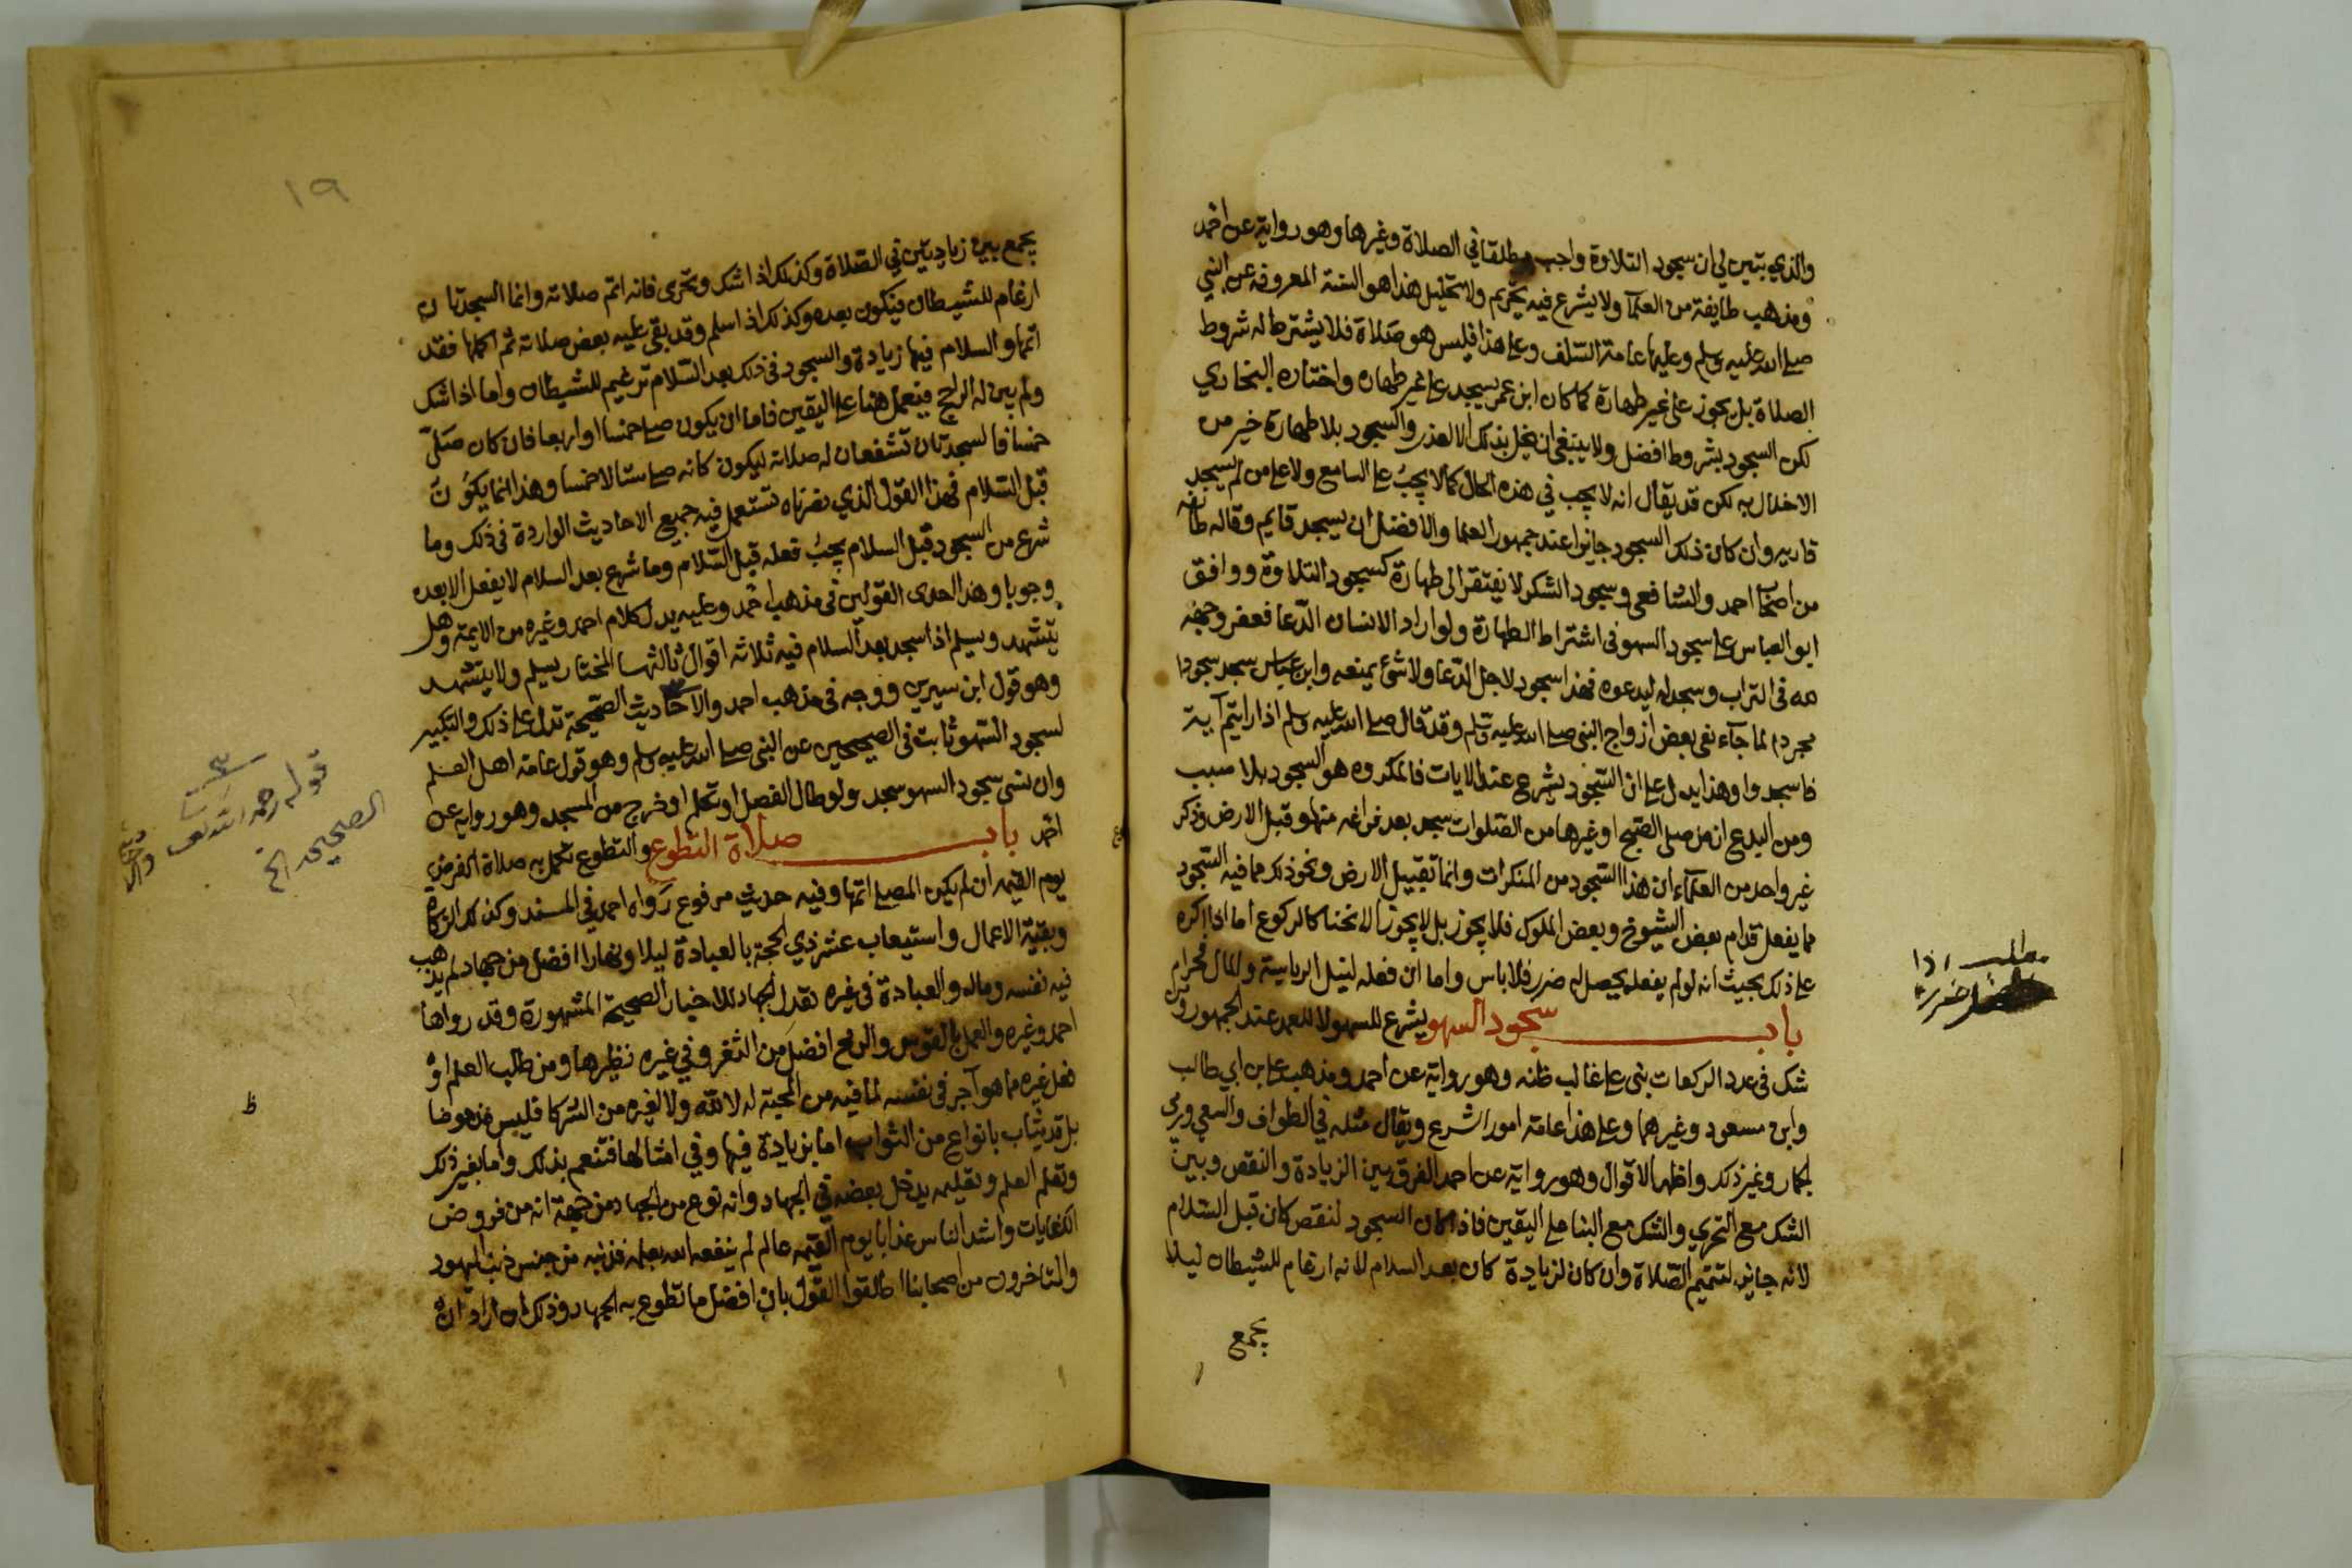 والذي تبين لي ان سجود التلاوة واجب مطلقا في الصلاة وغيرها وهو رواية عن احمد
ومذهب طايفة من العلمآ ولا يشرع فيه تحريم ولا تحليل هذا هو السنة المعروفة عن النبي
صلى الله عليه وسلم وعليها عامة السلف وعلى هذا فليس هو صلاة فلا يشترط له شروط
الصلاة بل يجوز على غير طهارة كما كان ابن عمر يسجد على غير طهارة واختاره البخاري
لكن السجود بشروط افضل ولا ينبغي ان يخل بذلك الا لعذر والسجود بلا طهارة خير من
الاخلال به لكن قد يقال انه لا يجب في هذه الحال كما لا يجب على السامع ولا على من لم يسجد
قاريه وان كان ذلك السجود جائزا عند جمهور العلما والافضل ان يسجد قايم وقاله طائفة
من اصحاب احمد والشافعي وسجود الشكر لا يفتقر الى طهارة كسجود التلاوة ووافق
ابو العباس على سجود السهو في اشتراط الطهارة ولو اراد الانسان الدعا فعفر وجهه
لله في التراب وسجد له ليدعوه فهذا سجود لاجل الدعا ولا شئ يمنعه وابن عباس سجد سجودا
مجردا لما جآء نعي بعض ازواج النبي صلى الله عليه وسلم وقد قال صلى الله عليه وسلم اذا رايتم آية
فاسجدوا وهذا يدل على ان السجود يشرع عند الايات فالمكروه هو السجود بلا سبب
ومن البدع ان من صلى الصبح او غيرها من الصلوات سجد بعد فراغه منها وقبل الارض وذكر
غير واحد من العلمآء ان هذا السجود من المنكرات وانما تقبيل الارض ونحو ذلك مما فيه السجود
مما يفعل قدام بعض الشيوخ وبعض الملوك فلا يجوز بل لا يجوز الانحنا كالركوع اما اذا اكره
على ذلك بحيث انه لو لم يفعله يحصل له ضرر فلا باس واما ان فعله لنيل الرياسة والمال فحرام
باب سجود السهو يشرع للسهو لا للعمد عند الجمهور ومن
شك في عدد الركعات بنى على غالب ظنه وهو رواية عن احمد ومذهب علي بن ابي طالب
وابن مسعود وغيرهما وعلى هذا عامة امور الشرع ويقال مثله في الطواف والسعي ورمي
الجمار وغير ذلك واظهر الاقوال وهو رواية عن احمد الفرق بين الزيادة والنقص وبين
الشك مع التحري والشك مع البنا على اليقين فاذا كان السجود لنقص كان قبل السلام
لانه جابر لتتميم الصلاة وان كان لزيادة كان بعد السلام لانه ارغام للشيطان ليلا
يجمع
مطلب اذا
ضرر
١٩
يجمع بين زيادتين في الصلاة وكذلك اذا شك وتحرى فانه اتم صلاته وانما السجدتان
ارغام للشيطان فيكون بعده وكذلك اذا سلم وقد بقي عليه بعض صلاته ثم اكملها فقد
اتمها والسلام فيها زيادة والسجود في ذلك بعد السلام ترغيم للشيطان واما اذا شك
ولم يبن له الراجح فيعمل هنا على اليقين فاما ان يكون صلى خمسا او اربعا فان كان صلى
خمسا فالسجدتان تشفعان له صلاته ليكون كانه صلى ستا لا خمسا وهذا انما يكون
قبل السلام فهذا القول الذي نصرناه تستعمل فيه جميع الاحاديث الواردة في ذلك وما
شرع من السجود قبل السلام يجب فعله قبل السلام وما شرع بعد السلام لا يفعل الا بعده
وجوبا وهذا احدى القولين في مذهب احمد وعليه يدل كلام احمد وغيره من الايمة وهل
يتشهد ويسلم اذا سجد بعد السلام فيه ثلاثة اقوال ثالثها المختار يسلم ولا يتشهد
وهو قول ابن سيرين ووجه في مذهب احمد والاحاديث الصحيحة تدل على ذلك والتكبير
لسجود السهو ثابت في الصحيحين عن النبي صلى الله عليه وسلم وهو قول عامة اهل العلم
وان نسي سجود السهو سجد ولو طال الفصل او تكلم او خرج من المسجد وهو رواية عن
احمد باب صلاة التطوع والتطوع تكمل به صلاة الفرض
يوم القيمه ان لم يكن المصلي اتمها وفيه حديث مرفوع رواه احمد في المسند وكذلك الزكاة
وبقية الاعمال واستيعاب عشر ذي الحجة بالعبادة ليلا ونهارا افضل من جهاد لم يذهب
فيه نفسه وماله والعبادة في غيره تعدل الجهاد للاخبار الصحيحة المشهورة وقد رواها
احمد وغيره والعمل بالقوس والرمح افضل من الثغر وفي غيره نظيرها ومن طلب العلم او
فعل غيره مما هو آجر في نفسه لما فيه من المحبة له لا لله ولا لغيره من الشركا فليس مذموما
بل قد يثاب بانواع من الثواب اما بزيادة فيها وفي امثالها فتنعم بذلك واما بغير ذلك
وتعلم العلم وتعليمه يدخل بعضه في الجهاد وانه نوع من الجهاد من جهة انه من فروض
الكفايات واشد الناس عذابا يوم القيمه عالم لم ينفعه الله بعلمه فذنبه من جنس ذنب اليهود
والمتاخرون من اصحابنا اطلقوا القول بان افضل ما تطوع به الجهاد وذلك لمن اراد ان
قوله رحمه الله
الصحيحه الخ
ط